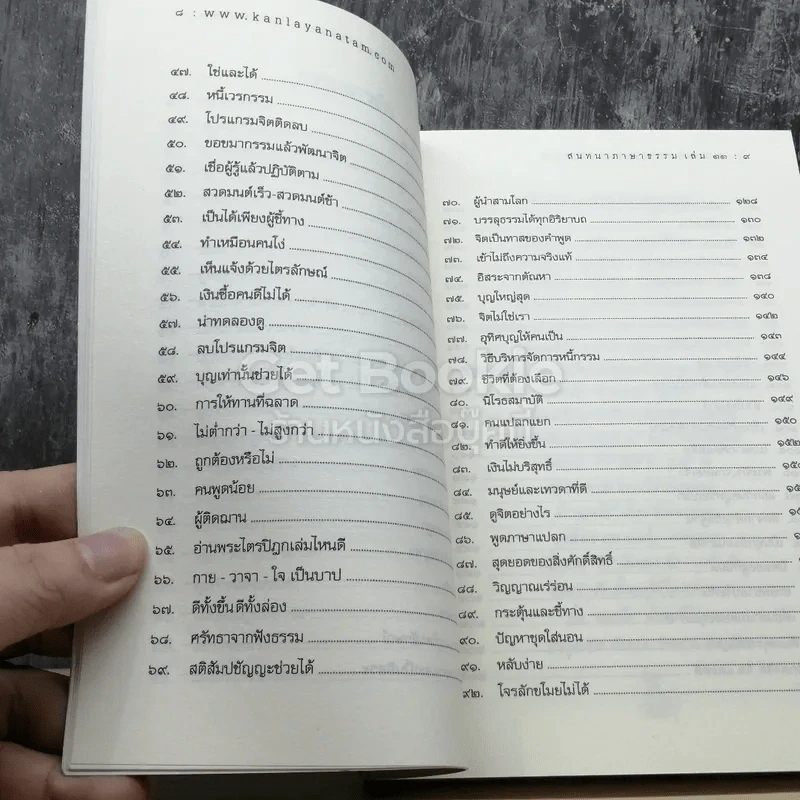 ๘ : www.kanlayanatam.com
๔๗. ใช่และได้
๔๘. หนี้เวรกรรม
๔๙. โปรแกรมจิตติดลบ
๕๐. ขอขมากรรมแล้วพัฒนาจิต
๕๑. เชื่อผู้รู้แล้วปฏิบัติตาม
๕๒. สวดมนต์เร็ว-สวดมนต์ช้า
๕๓. เป็นได้เพียงผู้ชี้ทาง
๕๔. ทำเหมือนคนโง่
๕๕. เห็นแจ้งด้วยไตรลักษณ์
๕๖. เงินซื้อคนดีไม่ได้
๕๗. น่าทดลองดู
๕๘. ลบโปรแกรมจิต
๕๙. บุญเท่านั้นช่วยได้
๖๐. การให้ทานที่ฉลาด
๖๑. ไม่ต่ำกว่า - ไม่สูงกว่า
๖๒. ถูกต้องหรือไม่
๖๓. คนพูดน้อย
๖๔. ผู้ติดฌาน
๖๕. อ่านพระไตรปิฎกเล่มไหนดี
๖๖. กาย - วาจา - ใจ เป็นบาป
๖๗. ดีทั้งขึ้น ดีทั้งล่อง
๖๘. ศรัทธาจากฟังธรรม
๖๙. สติสัมปชัญญะช่วยได้
สนทนาภาษาธรรม เล่ม ๑๑ : ๙
๗๐. ผู้นำสามโลก ๑๒๘
๗๑. บรรลุธรรมได้ทุกอิริยาบถ ๑๓๐
๗๒. จิตเป็นทาสของคำพูด ๑๓๒
๗๓. เข้าไม่ถึงความจริงแท้ ๑๓๔
๗๔. อิสระจากตัณหา ๑๓๘
๗๕. บุญใหญ่สุด ๑๔๐
๗๖. จิตไม่ใช่เรา ๑๔๒
๗๗. อุทิศบุญให้คนเป็น ๑๔๓
๗๘. วิธีบริหารจัดการหนี้กรรม ๑๔๔
๗๙. ชีวิตที่ต้องเลือก ๑๔๖
๘๐. นิโรธสมาบัติ ๑๔๙
๘๑. คนแปลกแยก ๑๕๐
๘๒. ทำดีให้ยิ่งขึ้น
๘๓. เงินไม่บริสุทธิ์
๘๔. มนุษย์และเทวดาที่ดี
๘๕. ดูจิตอย่างไร
๘๖. พูดภาษาแปลก
๘๗. สุดยอดของสิ่งศักดิ์สิทธิ์
๘๘. วิญญาณเร่ร่อน
๘๙. กระตุ้นและชี้ทาง
๙๐. ปัญหาชุดใส่นอน
๙๑. หลับง่าย
๙๒. โจรลักขโมยไม่ได้
Get Bookie
ร้านหนังสือบุ๊ยบุ๊ย